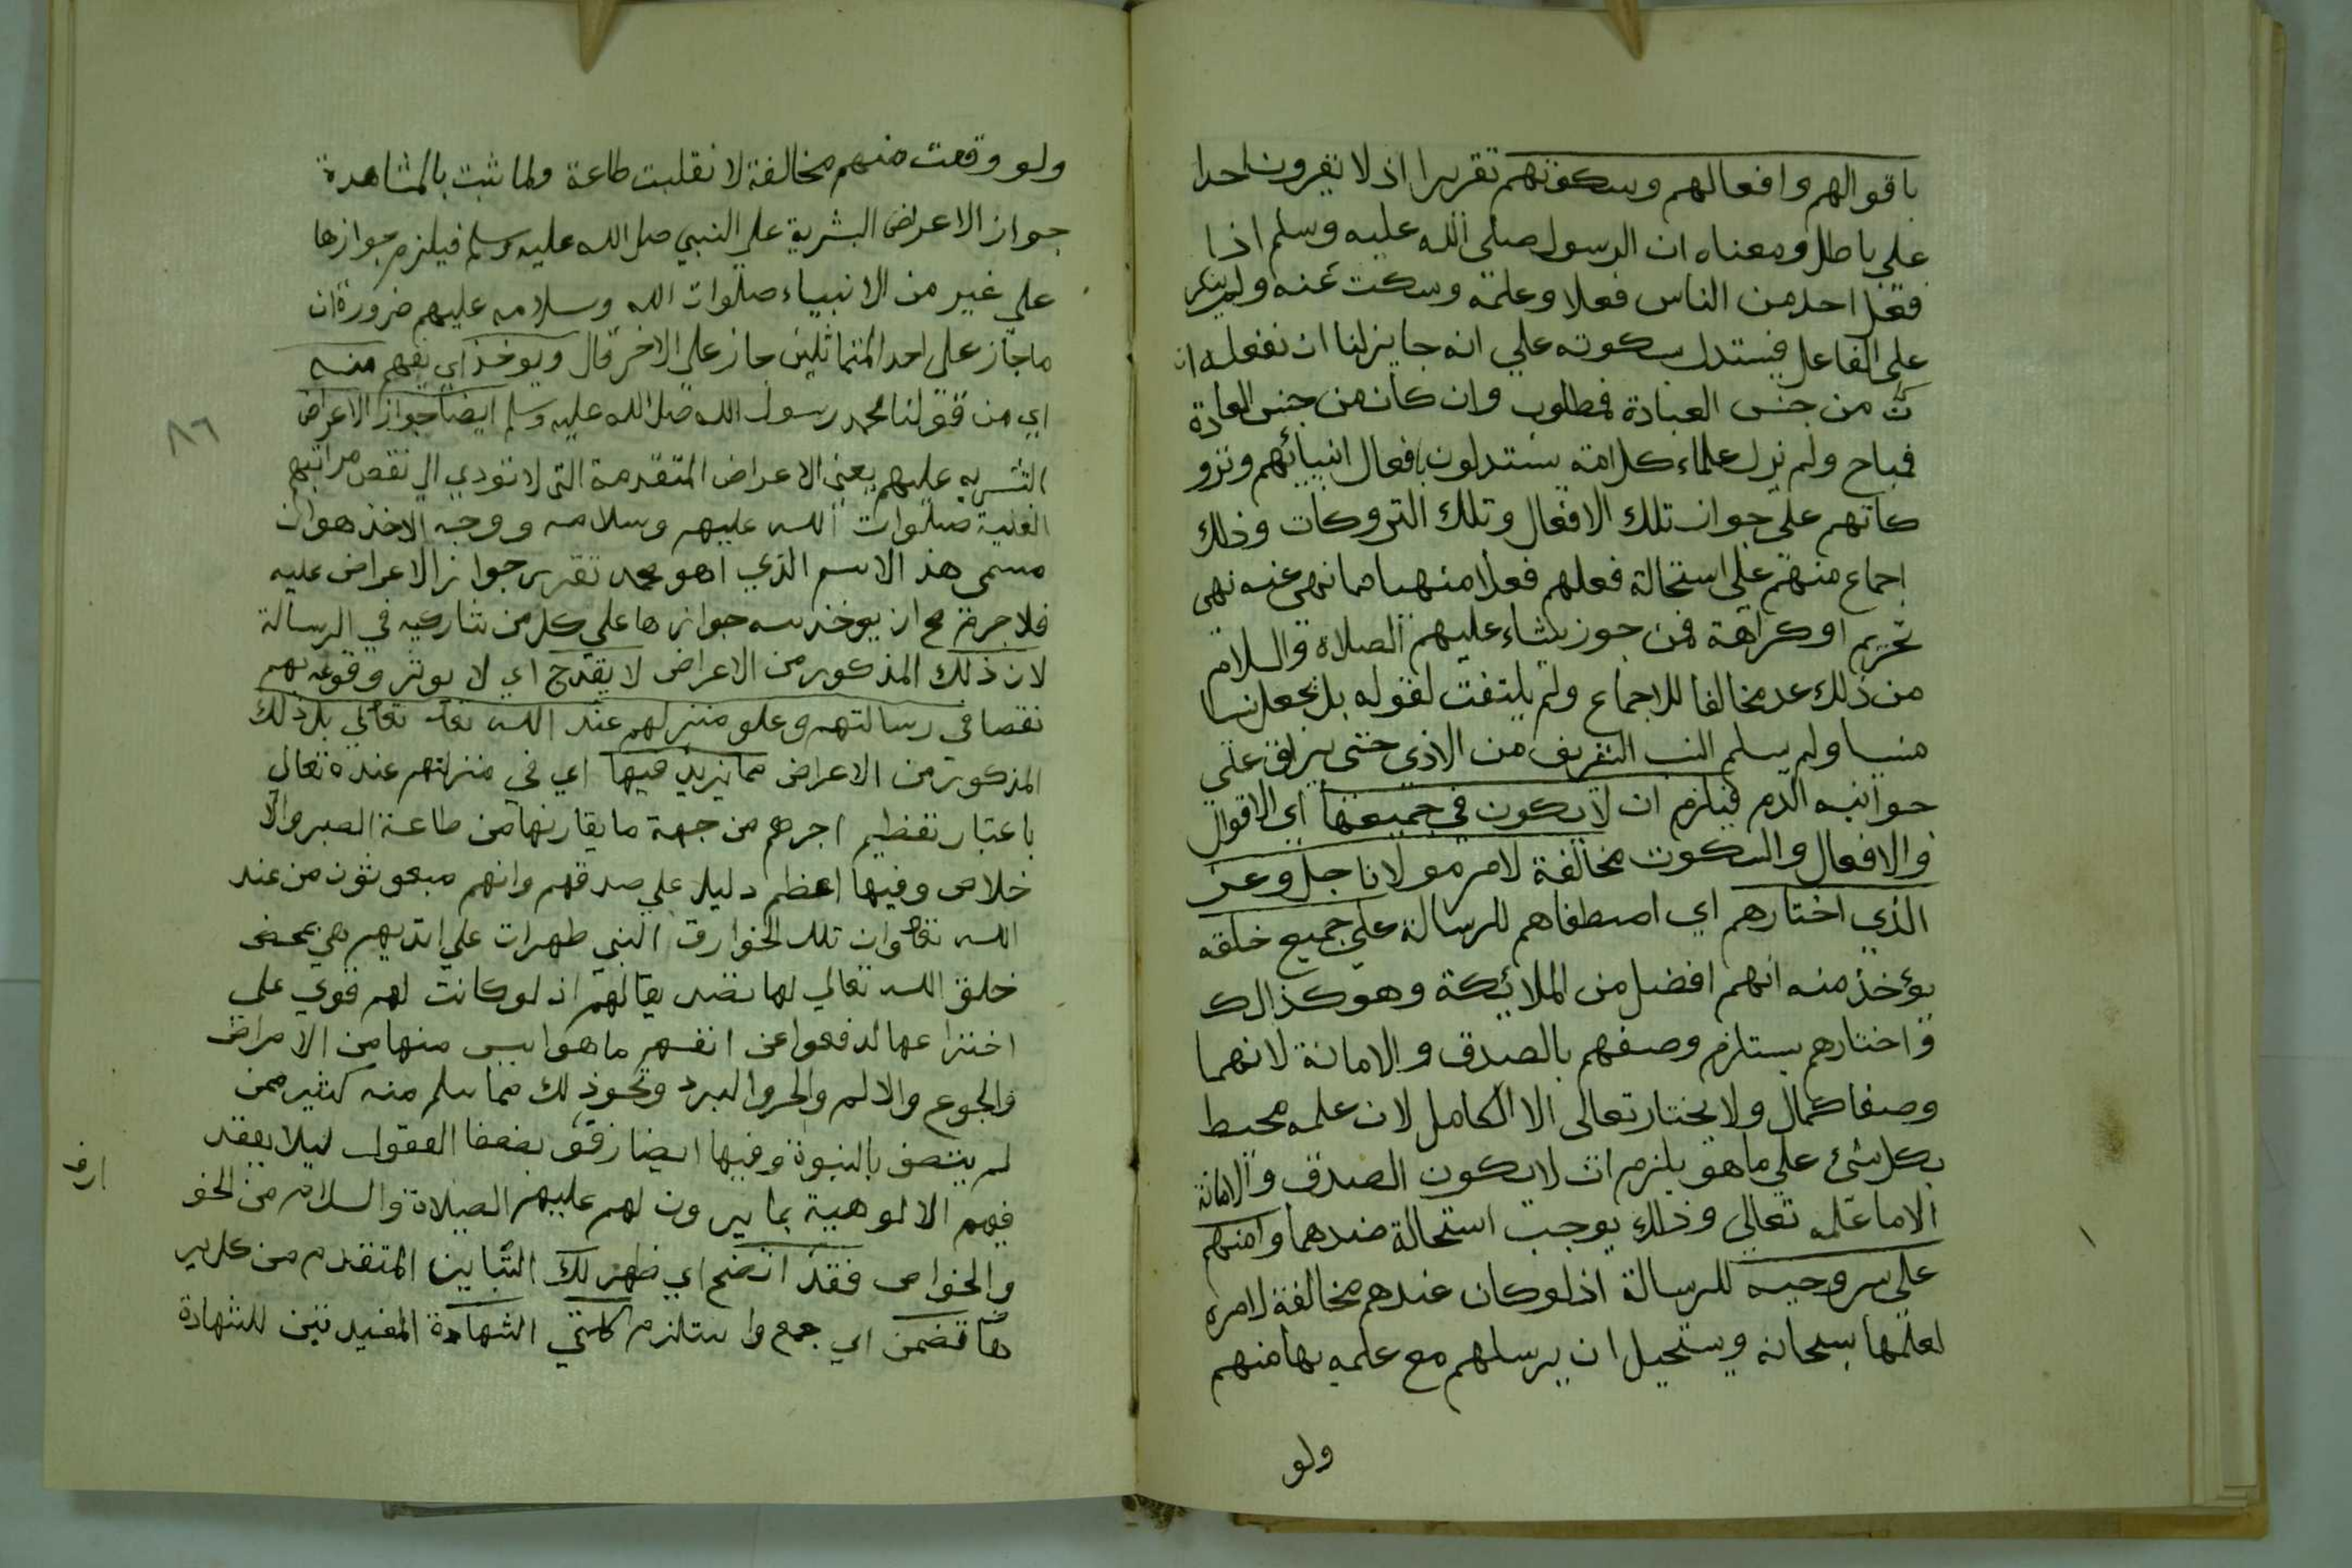 باقوالهم وافعالهم وسكوتهم تقريرا اذ لا يقرون احدا
علي باطل ومعناه ان الرسول صلى الله عليه وسلم اذا
فعل احد من الناس فعلا وعلمه وسكت عنه ولم ينكر
على الفاعل فيستدل بسكوته علي انه جايز لنا ان نفعله ان
كان من جنس العبادة فمطلوب وان كان من جنس العادة
فمباح ولم نزل علماء كل امة يستدلون بافعال انبيائهم وتزو
كاتهم علي جواز تلك الافعال وتلك التروكات وذلك
اجماع منهم علي استحالة فعلهم فعلا منهيا مما نهى عنه نهى
تحريم او كراهة فمن جوز عليهم الصلاة والسلام
من ذلك عد مخالفا للاجماع ولم يلتفت لقوله بل يجعل نسيا
منسيا ولم يسلم النسب الشريف من الاذي حتى يراق علي
جوانبه الدم فيلزم ان لا يكون في جميعها اي الاقوال
والافعال والسكوت مخالفة لامر مولانا جل وعز
الذي اختارهم اي اصطفاهم للرسالة علي جميع خلقه
يؤخذ منه انهم افضل من الملائكة وهو كذالك
واختارهم يستلزم وصفهم بالصدق والامانة لانهما
وصفا كمال ولا يختار تعالى الا الكامل لان علمه محيط
بكل شئ علي ما هو يلزم ان لا يكون الصدق والامانة
الا ما علمه تعالي وذلك يوجب استحالة ضدهما وامنهم
علي سر وحيه للرسالة اذ لو كان عندهم مخالفة لامره
لعلمها سبحانه ويستحيل ان يرسلهم مع علمه بها منهم
ولو
ولو وقعت منهم مخالفة لانقلبت طاعة ولما ثبت بالمشاهدة
جواز الاعراض البشرية علي النبي صل الله عليه وسلم فيلزم جوازها
علي غير من الانبياء صلوات الله وسلامه عليهم ضرورة ان
ما جاز على احد المتماثلين جاز على الاخر قال ويوخذ اي يفهم منه
اي من قولنا محمد رسول الله صل الله عليه وسلم ايضا جواز الاعراض
البشريه عليهم يعني الاعراض المتقدمة التي لا تودي الي نقص مراتبهم
العلية صلوات الله عليهم وسلامه ووجه الاخذ هو ان
مسمى هذ الاسم الذي اهو محمد تقرير جواز الاعراض عليه
فلا جرم مح ان يوخذ منه جوازها علي كل من شاركيه في الرسالة
لان ذلك المذكور من الاعراض لا يقدح اي لا يوثر وقوعه بهم
نقصا في رسالتهم وعلو منزلهم عند الله تعا تعالي بل ذلك
المذكور من الاعراض مما يزيد فيها اي في منزلتهم عنده تعالي
باعتبار تعظيم اجرهم من جهة ما يقارنها من طاعة الصبر والا
خلاص وفيها اعظم دليل علي صدقهم وانهم مبعوثون من عند
الله تعا وان تلك الخوارق التي ظهرات علي ايديهم هي بمحض
خلق الله تعالي لها تصديقا لهم اذ لو كانت لهم قوي علي
اختراعها لدفعوا عن انفسهم ما هو ايسر منها من الامراض
والجوع والالم والحر والبرد ونحو ذلك مما سلم منه كثير ممن
لم يتصف بالنبوة وفيها ايضا رفق بضعفا العقول ليلا يعتقد
فيهم الالوهية بما يرون لهم عليهم الصلاة والسلام من الخو
والخواص فقد اتضح اي ظهر لك التباين المتقدم من كل ير
ها تضمن اي جمع واستلزم كلمتي الشهادة المفيد تين للشهادة
٨٦
ارف